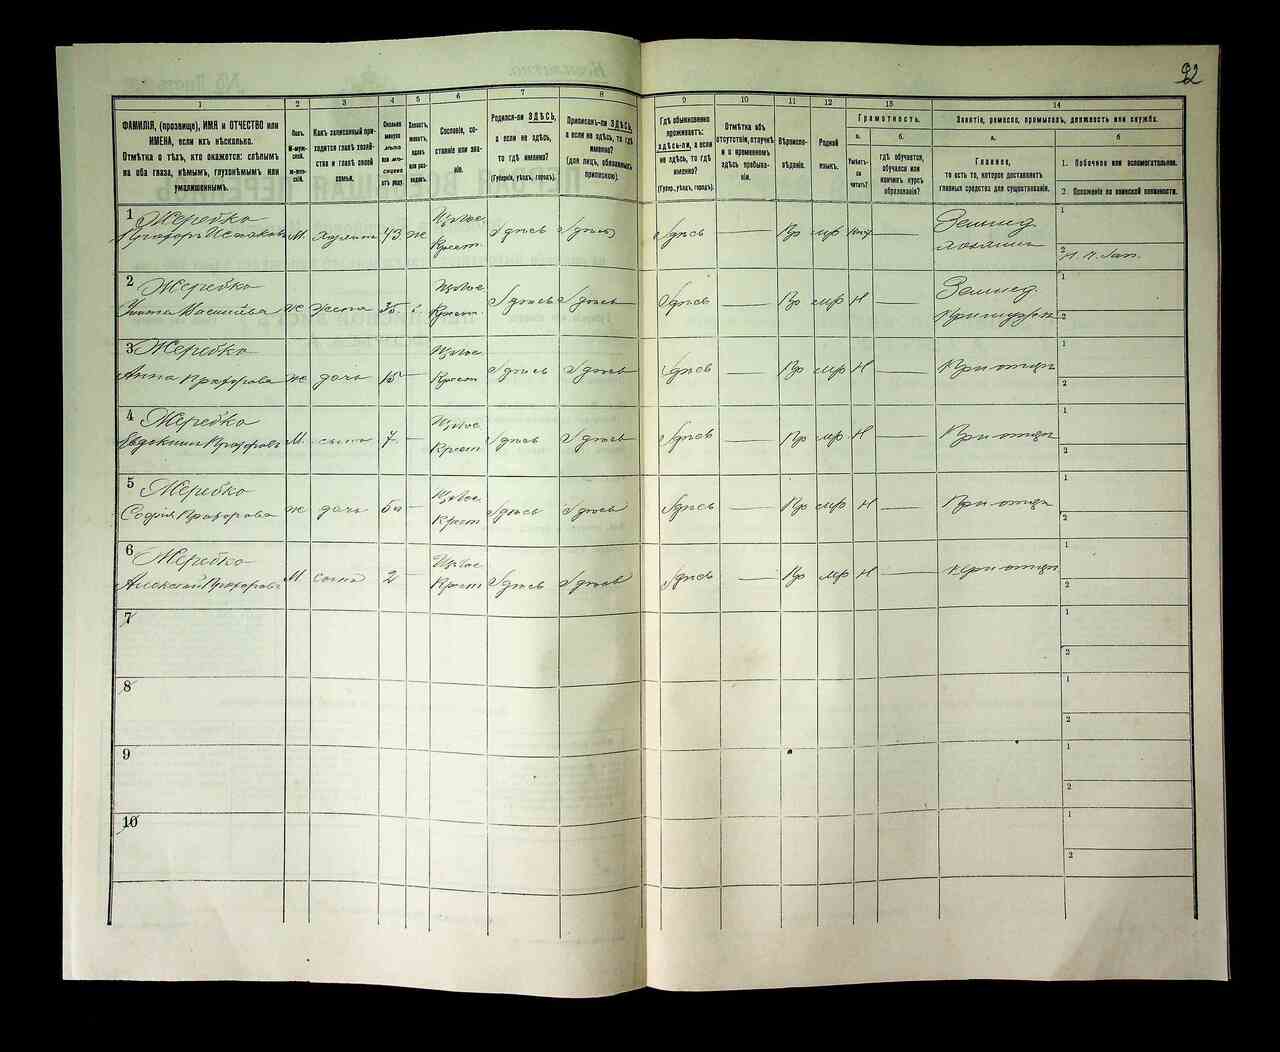 92
1
2
3
4
5
6
7
8
9
10
11
12
13
14
ФАМИЛІЯ, (прозвище), ИМЯ и ОТЧЕСТВО или
ИМЕНА, если ихъ нѣсколько.
Отмѣтка о тѣхъ, кто окажется: слѣпымъ
на оба глаза, нѣмымъ, глухонѣмымъ или
умалишеннымъ.
Полъ.
М-мужской.
Ж-женскій.
Какъ записанный приходится
главѣ хозяйства
и главѣ своей
семьи.
Сколько
минуло
лѣтъ
или мѣсяцевъ
отъ роду.
Холостъ,
женатъ,
вдовъ
или разведенъ.
Сословіе, состояніе
или званіе.
Родился-ли ЗДѢСЬ,
а если не здѣсь,
то гдѣ именно?
(Губернія, уѣздъ, городъ).
Приписанъ-ли ЗДѢСЬ,
а если не здѣсь, то гдѣ
именно?
(для лицъ, обязанныхъ
припискою).
Гдѣ обыкновенно
проживаетъ:
здѣсь-ли, а если
не здѣсь, то гдѣ
именно?
(Губер., уѣздъ, городъ).
Отмѣтка объ
отсутствіи, отлучкѣ
и о временномъ
здѣсь пребываніи.
Вѣроисповѣданіе.
Родной
языкъ.
Грамотность.
а.
б.
Умѣетъ-ли
читать?
гдѣ обучается,
обучался или
кончилъ курсъ
образованія?
Занятіе, ремесло, промыселъ, должность или служба.
а.
б
Главное,
то есть то, которое доставляетъ
главныя средства для существованія.
1. Побочное или вспомогательное.
2. Положеніе по воинской повинности.
1 Жеребко
М. Хозяинъ 43 ж Крест. Здѣсь Здѣсь Здѣсь — Пр мр — Землед.
хозяинъ
1
2
2 Жеребко
ж жена Крест. Здѣсь Здѣсь Здѣсь — Пр мр Н — Землед.
При мужѣ
1
2
3 Жеребко
Анна Прохорова ж дочь 15 — Крест. Здѣсь Здѣсь Здѣсь — Пр мр Н — При отцѣ
1
2
4 Жеребко
Евдокимъ Прохоровъ М. сынъ 7 — Крест. Здѣсь Здѣсь Здѣсь — Пр мр Н — При отцѣ
1
2
5 Жеребко
Софія Прохорова ж дочь — Крест Здѣсь Здѣсь Здѣсь — Пр мр Н — При отцѣ
1
2
6 Жеребко
Алексѣй Прохоровъ М сынъ 2 — Крест Здѣсь Здѣсь Здѣсь — Пр мр Н — При отцѣ
1
2
7
1
2
8
1
2
9
1
2
10
1
2